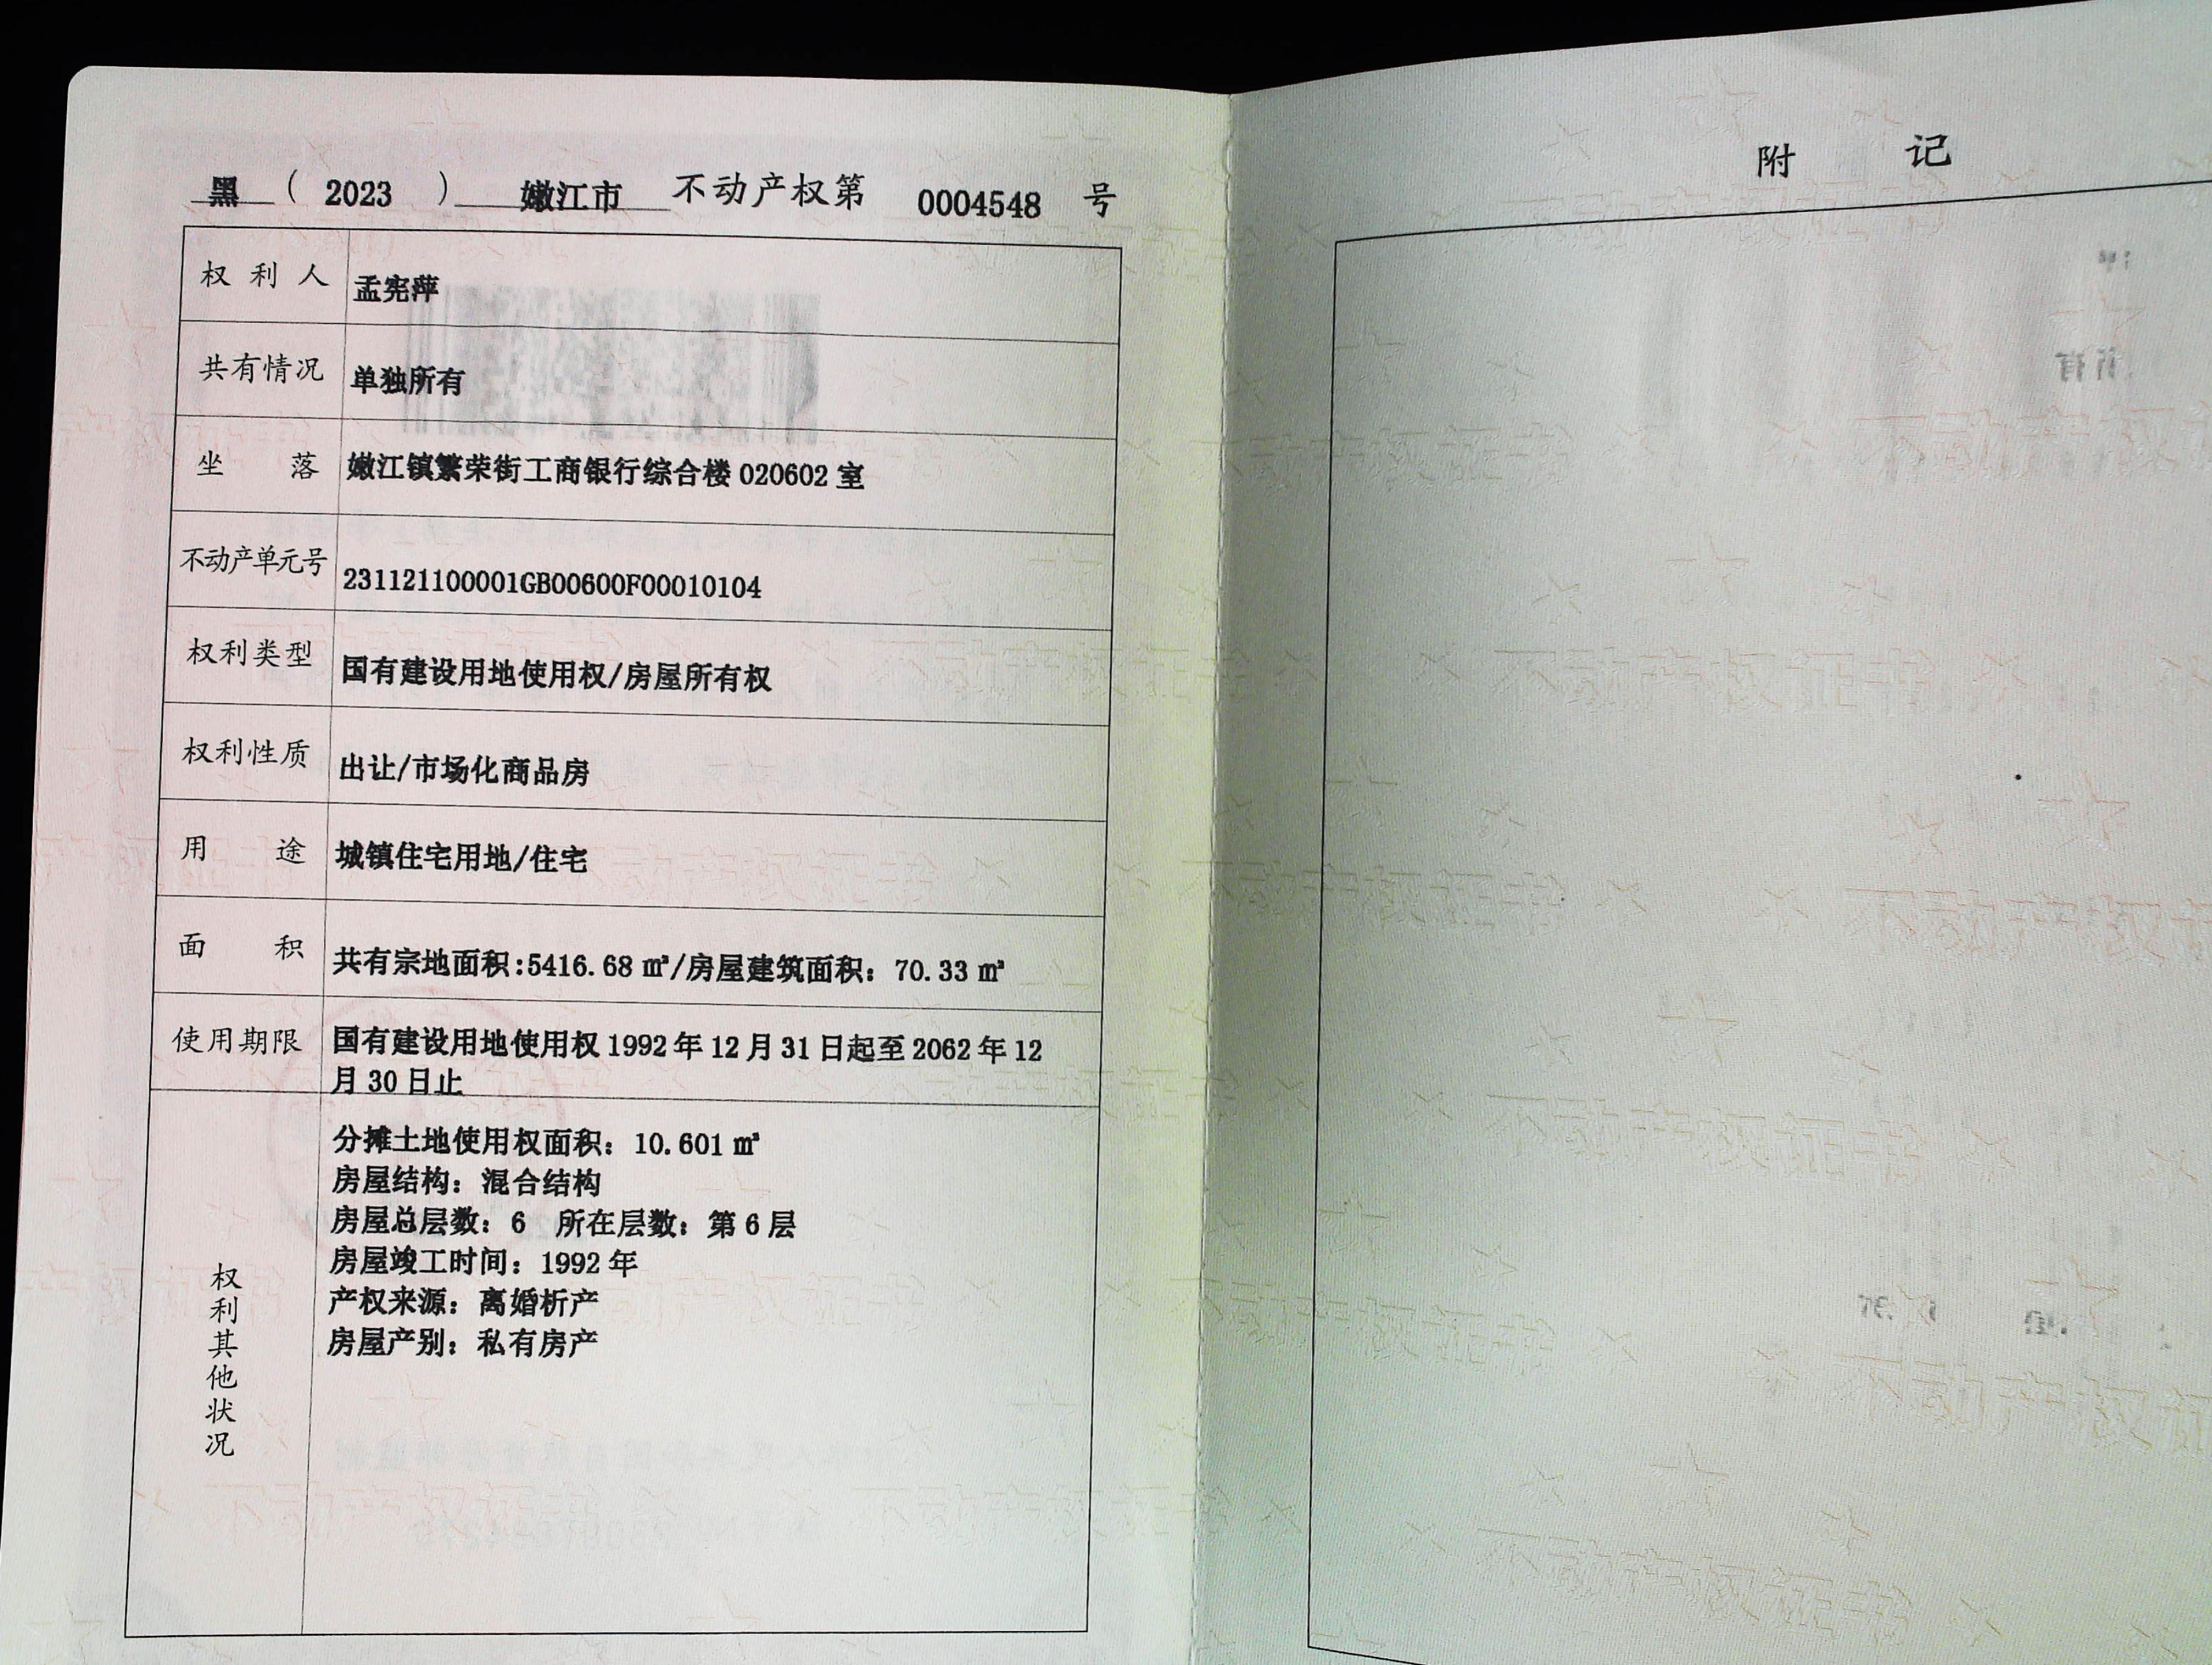 黑（2023）嫩江市 不动产权第 0004548 号
权利人 孟宪萍
共有情况 单独所有
坐落 嫩江镇繁荣街工商银行综合楼 020602 室
不动产单元号 231121100001GB00600F00010104
权利类型 国有建设用地使用权/房屋所有权
权利性质 出让/市场化商品房
用途 城镇住宅用地/住宅
面积 共有宗地面积:5416.68 ㎡/房屋建筑面积：70.33 ㎡
使用期限 国有建设用地使用权 1992 年 12 月 31 日起至 2062 年 12
月 30 日止
权利其他状况
分摊土地使用权面积：10.601 ㎡
房屋结构：混合结构
房屋总层数：6 所在层数：第 6 层
房屋竣工时间：1992 年
产权来源：离婚析产
房屋产别：私有房产
附记